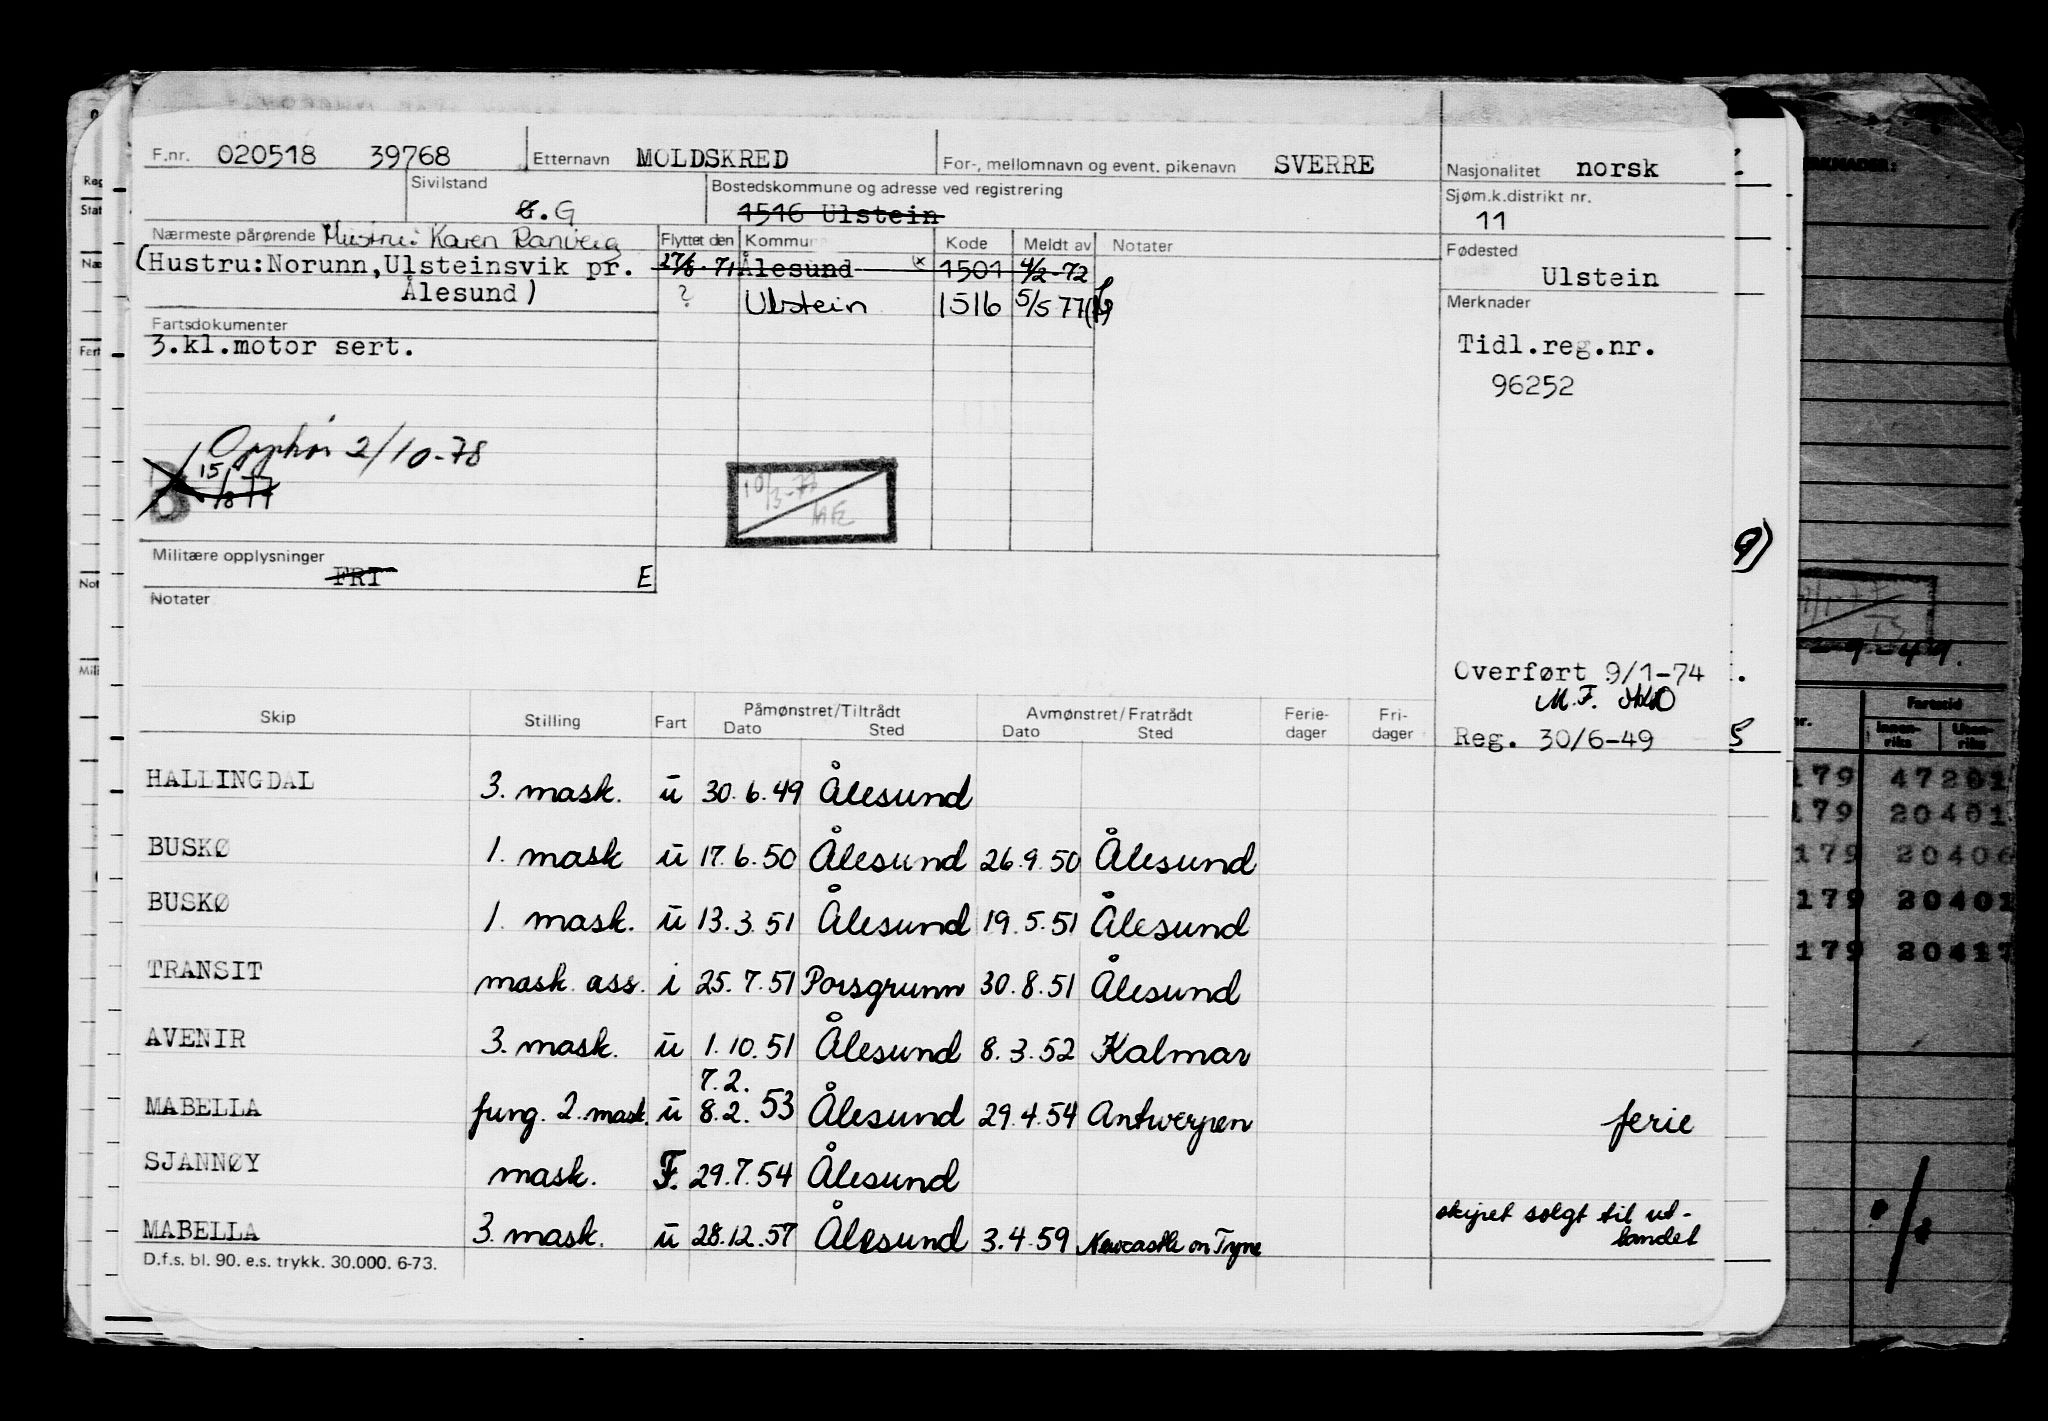 F.nr. 020518 39768 Etternavn MOLDSKRED For-, mellomnavn og event. pikenavn SVERRE Nasjonalitet norsk
Sivilstand G Bostedskommune og adresse ved registrering 1516 Ulstein Sjøm.k.distrikt nr. 11
Nærmeste pårørende Hustru: Karen Ranveig Flyttet den Kommune Kode Meldt av Notater Fødested
(Hustru:Norunn,Ulsteinsvik pr. 27/8-71 Ålesund 1501 4/2-72 Ulstein
Ålesund) ? Ulstein 1516 5/5 77 Merknader
Fartsdokumenter
3.kl.motor sert. Tidl.reg.nr.
96252
Opphør 2/10-78
15/8 77
10/3-77
Militære opplysninger
FRI E
Notater
Overført 9/1-74
M.F.
Reg. 30/6-49
Skip Stilling Fart Påmønstret/Tiltrådt Avmønstret/Fratrådt Ferie- Fri-
Dato Sted Dato Sted dager dager
HALLINGDAL 3. mask. u 30.6.49 Ålesund
BUSKØ 1. mask u 17.6.50 Ålesund 26.9.50 Ålesund
BUSKØ 1. mask. u 13.3.51 Ålesund 19.5.51 Ålesund
TRANSIT mask ass. i 25.7.51 Porsgrunn 30.8.51 Ålesund
AVENIR 3. mask. u 1.10.51 Ålesund 8.3.52 Kalmar
7.2.
MABELLA fung. 2. mask. u 8.2.53 Ålesund 29.4.54 Antwerpen ferie
SJANNØY mask. F. 29.7.54 Ålesund
MABELLA 3. mask. u 28.12.57 Ålesund 3.4.59 Newcastle on Tyne skipet solgt til ut-
landet
D.f.s. bl. 90. e.s. trykk. 30.000. 6-73.
9)
5
Fartstid
Innen-
riks
Uten-
riks
179 47201
179 20401
179 20406
179 20401
179 20417